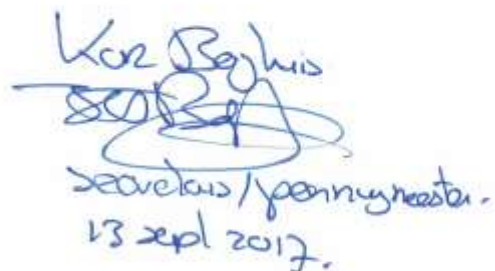 Kor Beghuis
secretaris/penningmeester.
13 sept 2017.